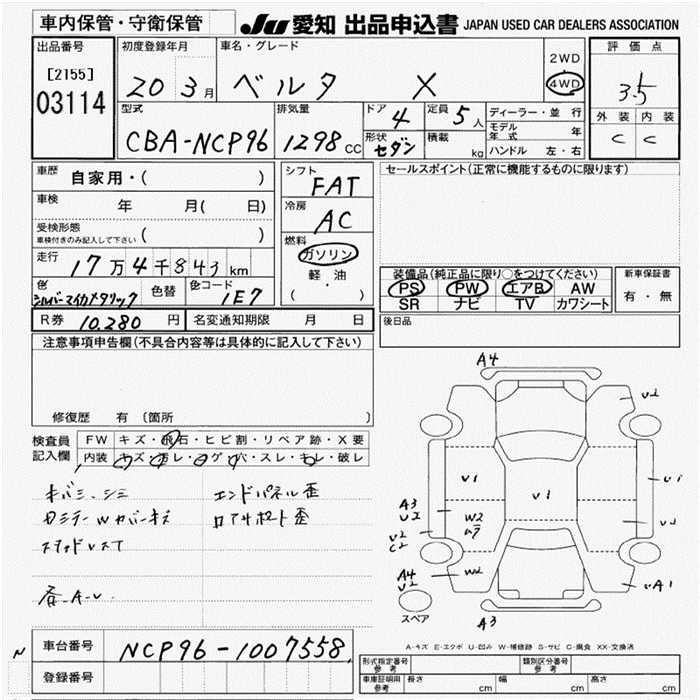 車内保管・守衛保管
JU 愛知 出品申込書 JAPAN USED CAR DEALERS ASSOCIATION
出品番号
[2155]
03114
初度登録年月
20 3月
車名・グレード
ベルタ X
2WD
4WD
評価点
3.5
外装 内装
C C
型式
CBA-NCP96
排気量
1298 CC
ドア 4
形状 セダン
定員 5人
積載 kg
ディーラー・並行
モデル年式 年
ハンドル 左・右
車歴 自家用・( )
車検 年 月( 日)
受検形態
車検付きのみ記入して下さい ( )
走行 17万4千843km
色 シルバーマイカメタリック 色替 色コード 1E7
シフト
FAT
冷房
AC
燃料
ガソリン
軽油
( ・ )
セールスポイント(正常に機能するものに限ります)
装備品(純正品に限り○をつけてください)
PS PW エアB AW
SR ナビ TV カワシート
新車保証書
有・無
R券 10.280 円 名変通知期限 月 日
後日品
注意事項申告欄(不具合内容等は具体的に記入して下さい)
修復歴 有 〔箇所
検査員記入欄
FW キズ・飛石・ヒビ割・リペア跡・X要
内装 キズ・汚レ・コゲ・穴・スレ・キレ・破レ
エンドパネル歪
コアサポート歪
各A-U
A4
U2
U1
U1
U1
A3
U2
W2
U2
C2
W2
A4
U2
A1
A3
スペア
A-キズ E-エクボ U-凹み W-補修跡 S-サビ C-腐食 XX-交換済
車台番号 NCP96-1007558
登録番号
形式指定番号 参考
類別区分番号 参考
車庫証明用 参考 長さ cm 幅 cm 高さ cm